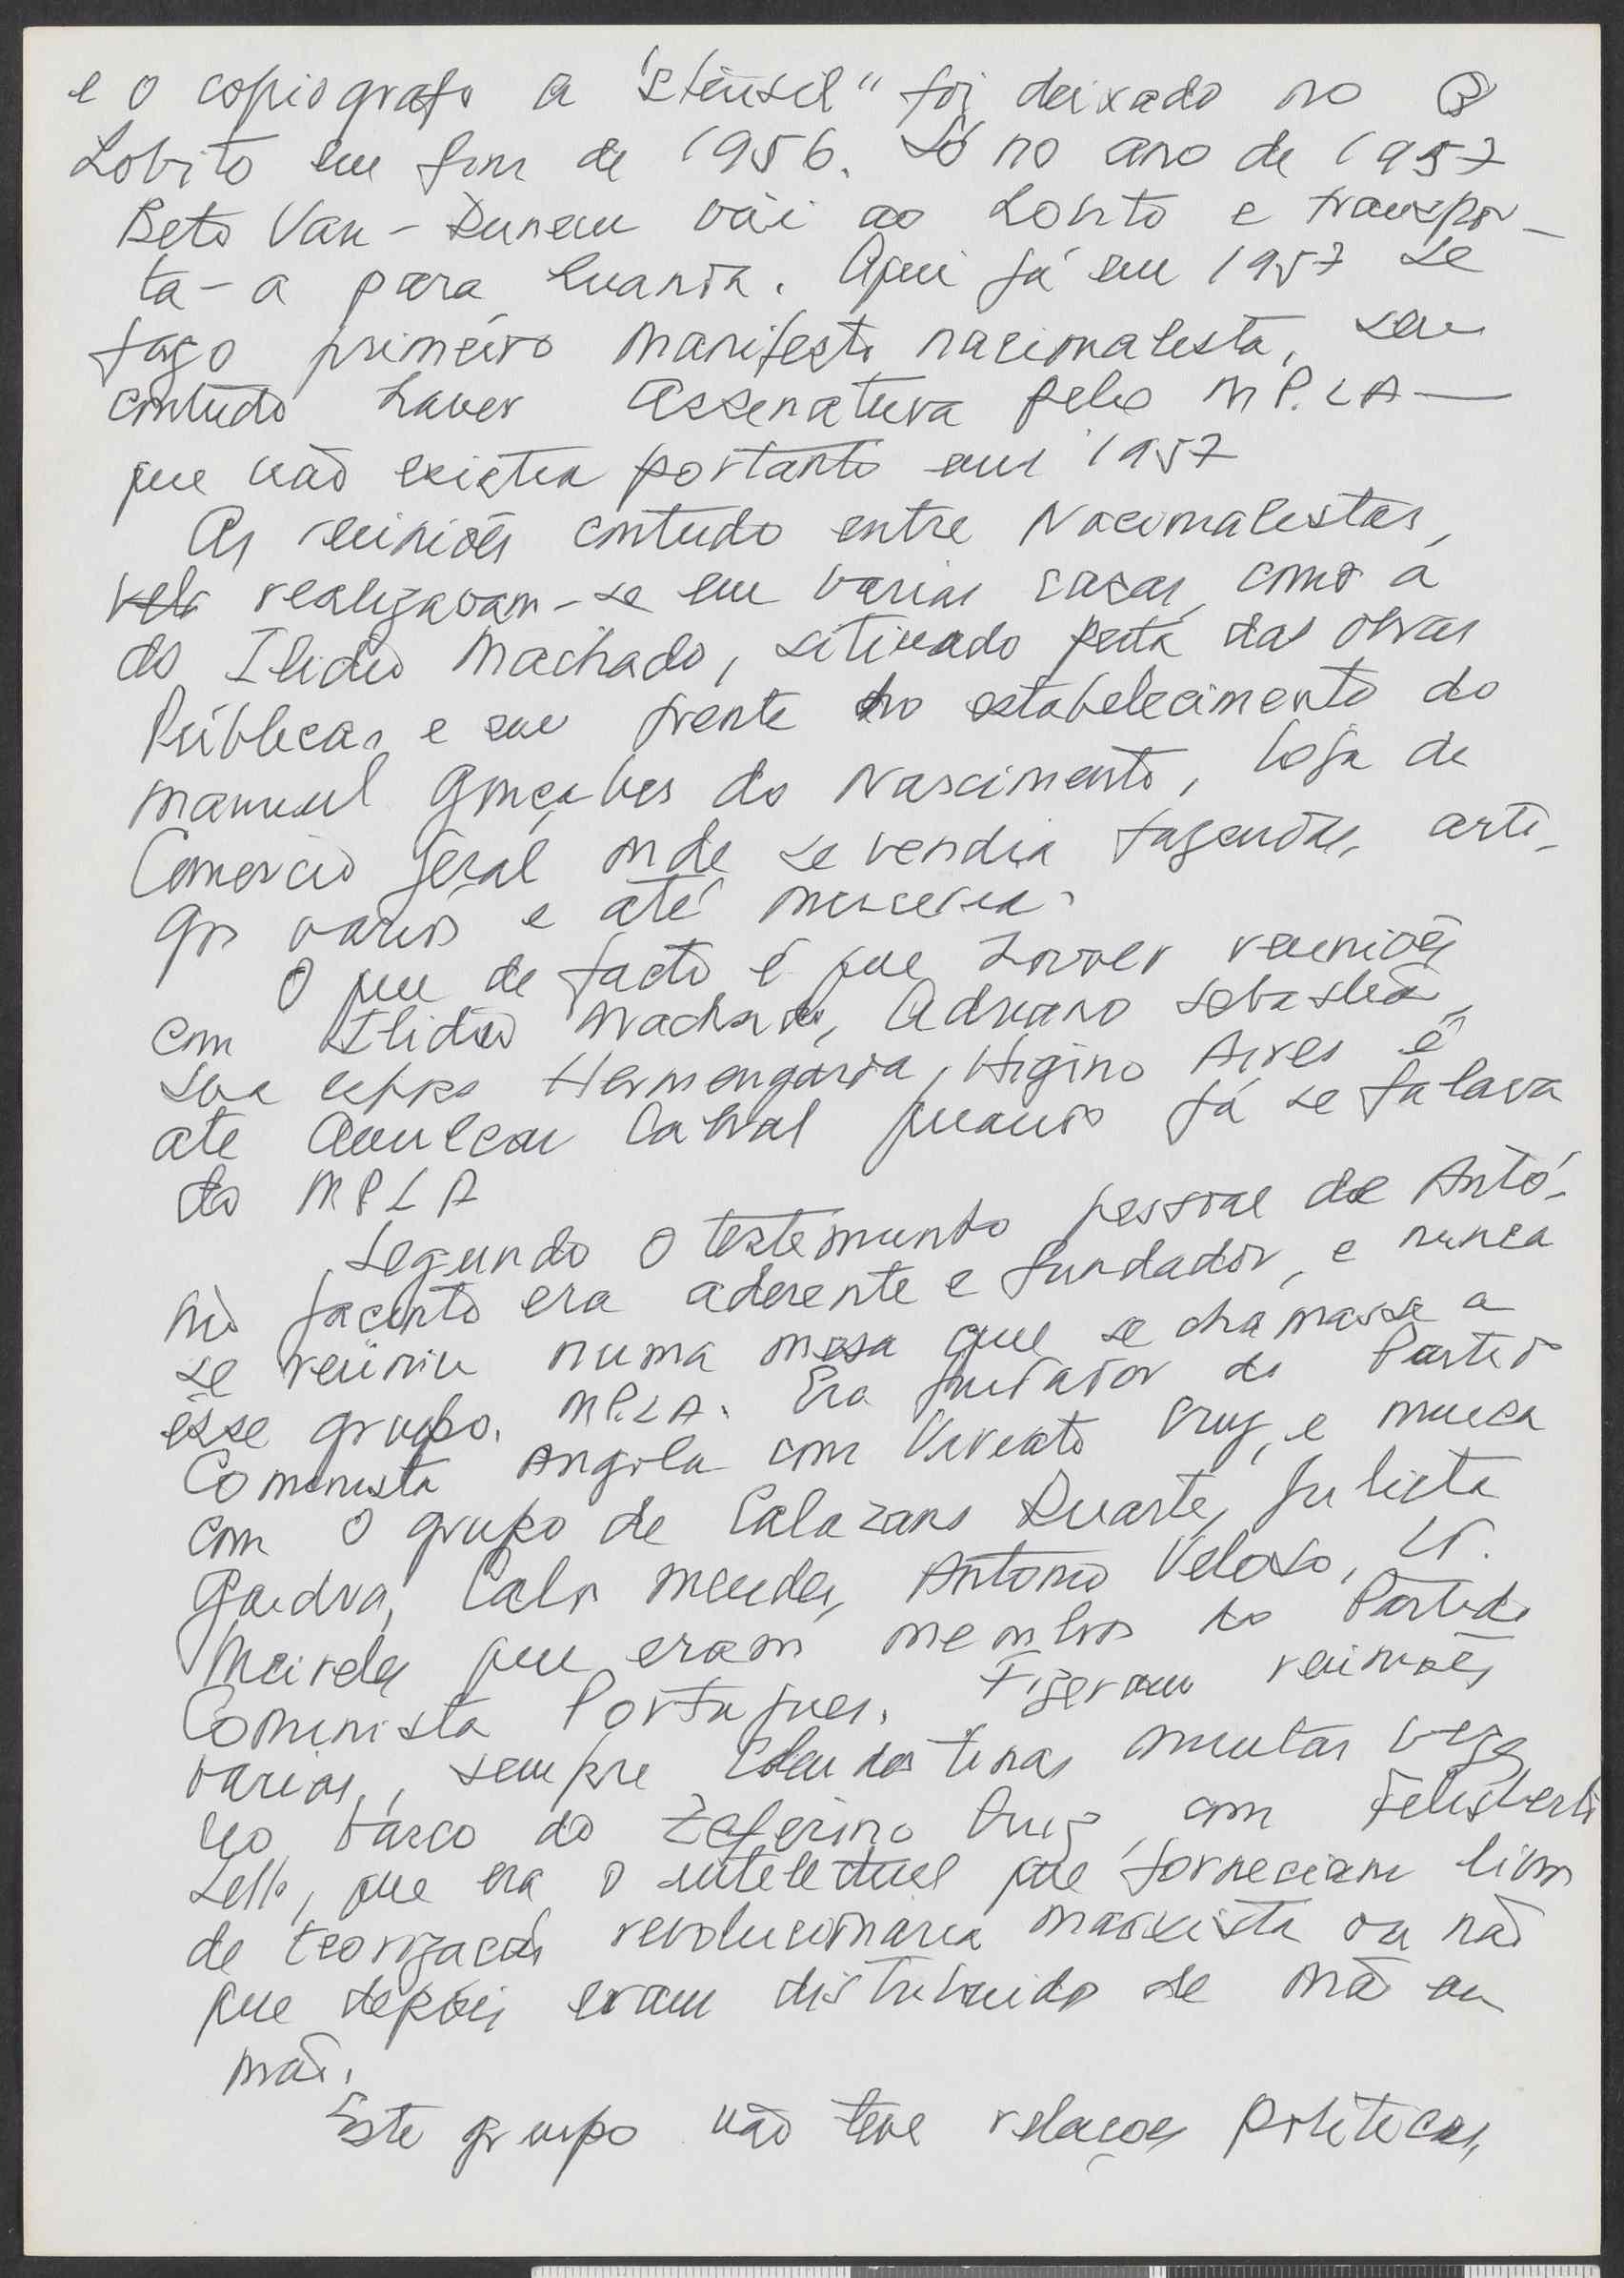 e o copiografo a "stensil" foi deixado no
Lobito em fim de 1956. Só no ano de 1957
Beto Van-Dunem vai ao Lobito e transpor-
ta-a para Luanda. Aqui já em 1957 se
faz o primeiro manifesto nacionalista, sem
contudo haver assenatura pelo M P. L A —
que não existia portanto em 1957
As reuniões contudo entre Nacionalistas,
realizavam-se em varias casas, como a
do Ilidio Machado, situado perto das obras
Públicas e em frente do estabelecimento do
Manuel Gonçalves do Nascimento, loja de
Comercio geral onde se vendia fazendas, arti-
gos varios e até mercearia.
O que de facto é que houver reuniões
com Ilidio Machado, Adriano Sebastião,
sua espso Hermengarda, Higino Aires e
até Amilcar Cabral quando já se falava
do M P L A
Segundo o testemunho pessoal de Antó-
nio Jacinto era aderente e fundador, e nunca
se reúniu numa mesa que se chamasse a
êsse grupo. MP.L A. Era fundador do Partido
Comunista Angola com Viriato Cruz, e nunca
com o grupo de Calazans Duarte, Julieta
Gandra, Calos Mendes, Antonio Veloso,
Meireles que eram membros do Partido
Comunista Portugues. Fizeram reuniões
varias, sempre clandestinas muitas vezes
no barco do Zeferino Cruz, com Felisberto
Lello, que era o intelectual que forneciam livros
de teorização revolucionaria marxista ou não
que depois eram distribuidos de mão em
mão.
Este grupo não teve relações politicas,